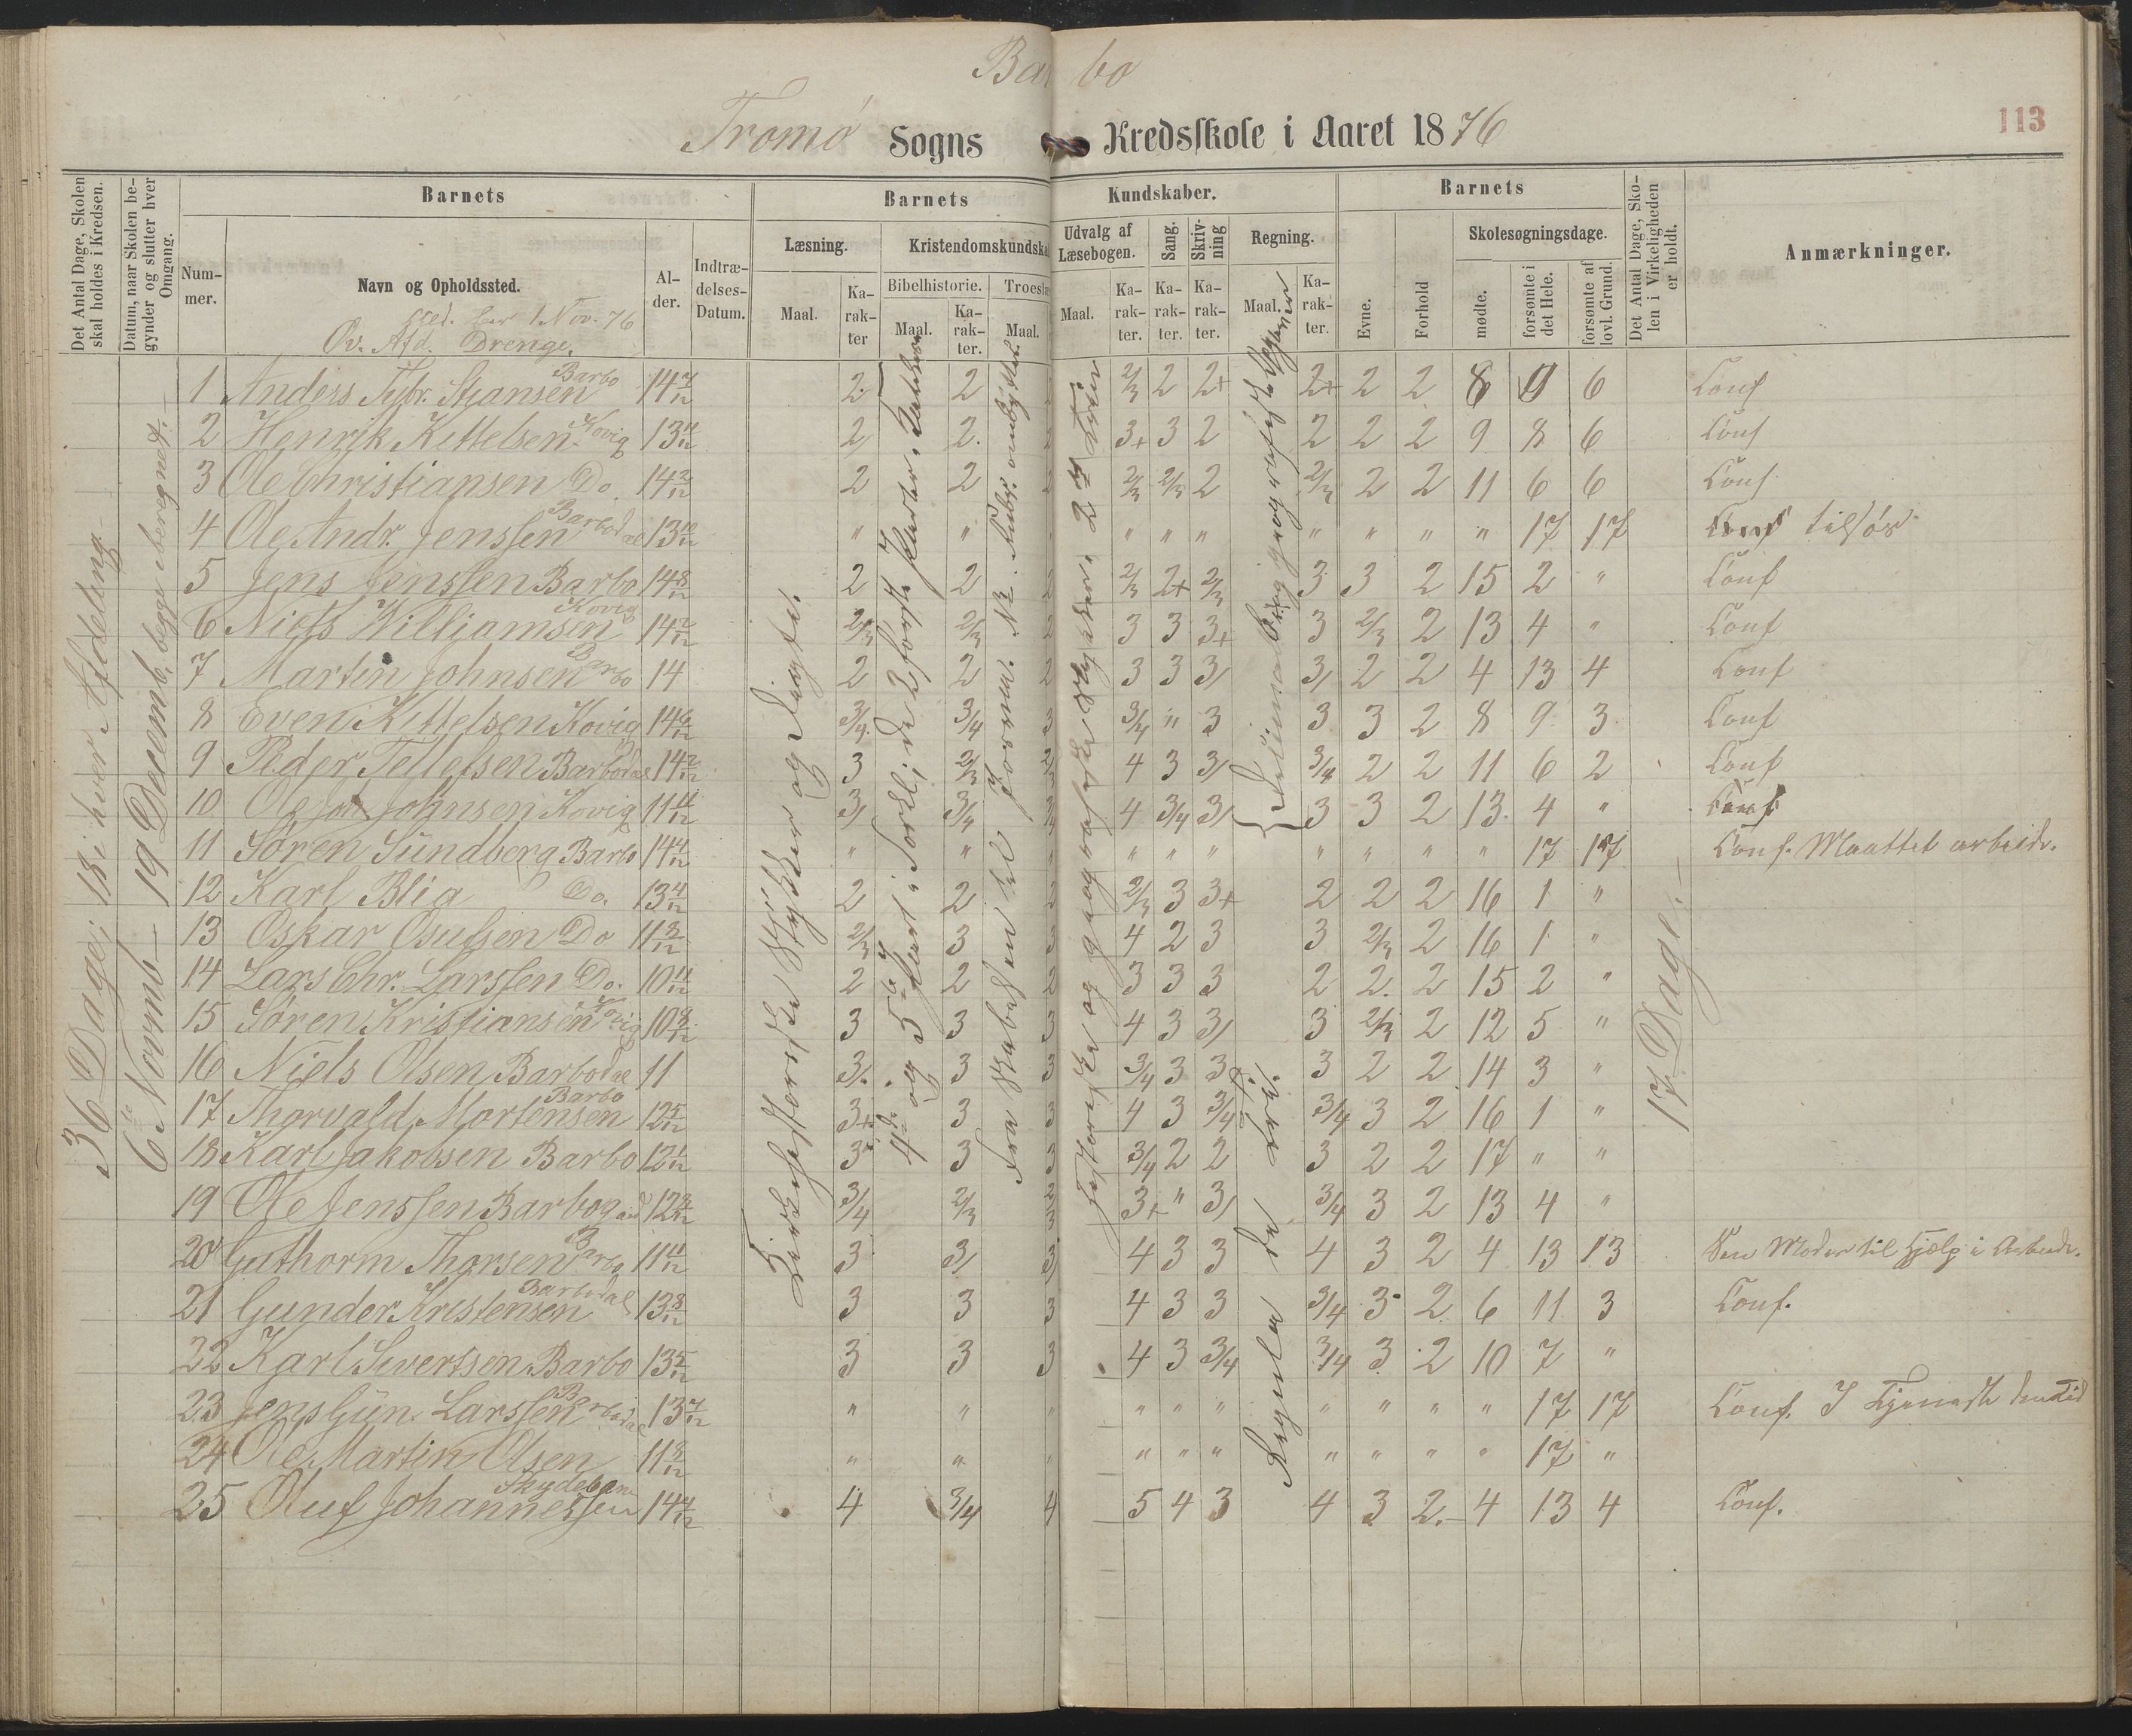 Barbo
Tromø Sogns Kredsskole i Aaret 1876
113
Det Antal Dage, Skolen skal holdes i Kredsen.
Datum, naar Skolen begynder og slutter hver Omgang.
Barnets
Nummer.
Navn og Opholdssted.
Alder.
Indtrædelses-Datum.
Barnets Kundskaber.
Læsning.
Maal.
Karakter
Kristendomskundska
Bibelhistorie.
Maal.
Karakter.
Troeslæ
Maal.
Udvalg af Læsebogen.
Maal.
Karakter.
Sang.
Karakter.
Skrivning
Karakter.
Regning.
Maal.
Karakter.
Barnets
Evne.
Forhold
Skolesøgningsdage.
mødte.
forsømte i det Hele.
forsømte af lovl. Grund.
Det Antal Dage, Skolen i Virkeligheden er holdt.
Anmærkninger.
1 Nov. 76
Øv. Afd. Drenge.
36 Dage; 18 i hver Afdeling
6te Novmb – 19 Decemb. begge iberegnet.
17 Dage.
1 Anders Stiansen Barbo 14 7/12 2 2 2/3 2 2+ 2+ 2 2 8 9 6 Conf
2 Henrik Kittelsen Kovig 13 11/12 2 2. 2 3+ 3 2 2 2 2 9 8 6 Conf
3 Ole Christiansen Do. 14 2/12 2 2 2 2/3 2/3 2 2/3 2 2 11 6 6 Conf
4 Ole Andr. Jenssen Barbodal 13 10/12 " " " " " " " " " 17 17 Conf tilsøs
5 Jens Jenssen Barbo 14 8/12 2 2 2 2/3 2+ 2/3 3 3 2 15 2 " Conf
6 Niels Williamsen Kovig 14 2/12 2/3 2/3 2 3 3 3+ 3 2/3 2 13 4 " Conf
7 Martin Johnsen Barbo 14 2 2 2 3 3 3/ 3/ 2 2 4 13 4 Conf
8 Even Kittelsen Kovig 14 6/12 3/4 3/4 3 3/4 " 3 3 3 2 8 9 3 Conf
9 Peder Tellefsen Barbodal 14 2/12 3 2/3 2/3 4 3 3/ 3/4 2 2 11 6 2 Conf
10 Ole Johnsen Kovig 11 11/12 3/ 3/4 3/4 4 3/4 3/ 3 3 2 13 4 " Conf
11 Søren Sundberg Barbo 14 4/12 " " " " " " " " " " 17 17 Conf. Maattet arbeide.
12 Karl Blia Do. 13 4/12 2 2 2 2/3 3 3+ 2 2 2 16 1 "
13 Oskar Osufsen Do 11 3/12 2/3 3 3 4 2 3 3 2/3 2 16 1 "
14 Lars Chr. Larssen Do. 10 11/12 2 2 2 3 3 3 2 2. 2 15 2 "
15 Søren Kristiansen Kovig 10 8/12 3 3 3 4 3 3/ 3 2/3 2 12 5 "
16 Niels Olsen Barbodal 11 3/. 3 3 3/4 3 3 3 2 2 14 3 "
17 Thorvald Mortensen Barbo 12 5/12 3+ 3 3 4 3 3/4 3/4 3 2 16 1 "
18 Karl Jakobsen Barbo 12 1/12 3 3 3 3/4 2 2 3 2 2 17 " "
19 Ole Jenssen 12 3/4 2/3 2/3 3+ " 3/ 3/4 3 2 13 4 "
20 Guthorm Thorsen Barbo 11 11/12 3 3/ 3/ 4 3 3 4 3 2 4 13 13 Moder til Hjelp i Arbeide.
21 Gunder Kristensen Barbodal 13 8/12 3 3 3 4 3 3 3/4 3 2 6 11 3 Conf.
22 Karl Sivertsen Barbo 13 5/12 3 3 3 4 3 3/4 3/4 3 2 10 7 "
23 Jens Gun. Larssen Barbodal 13 7/12 " " " " " " " " " " 17 17 Conf. I Tjeneste
24 Ole Martin Olsen 11 8/12 " " " " " " " " " " 17 "
25 Oluf Johannessen Skydebane 14 4/12 4 3/4 4 5 4 3 4 3 2. 4 13 4 Conf.